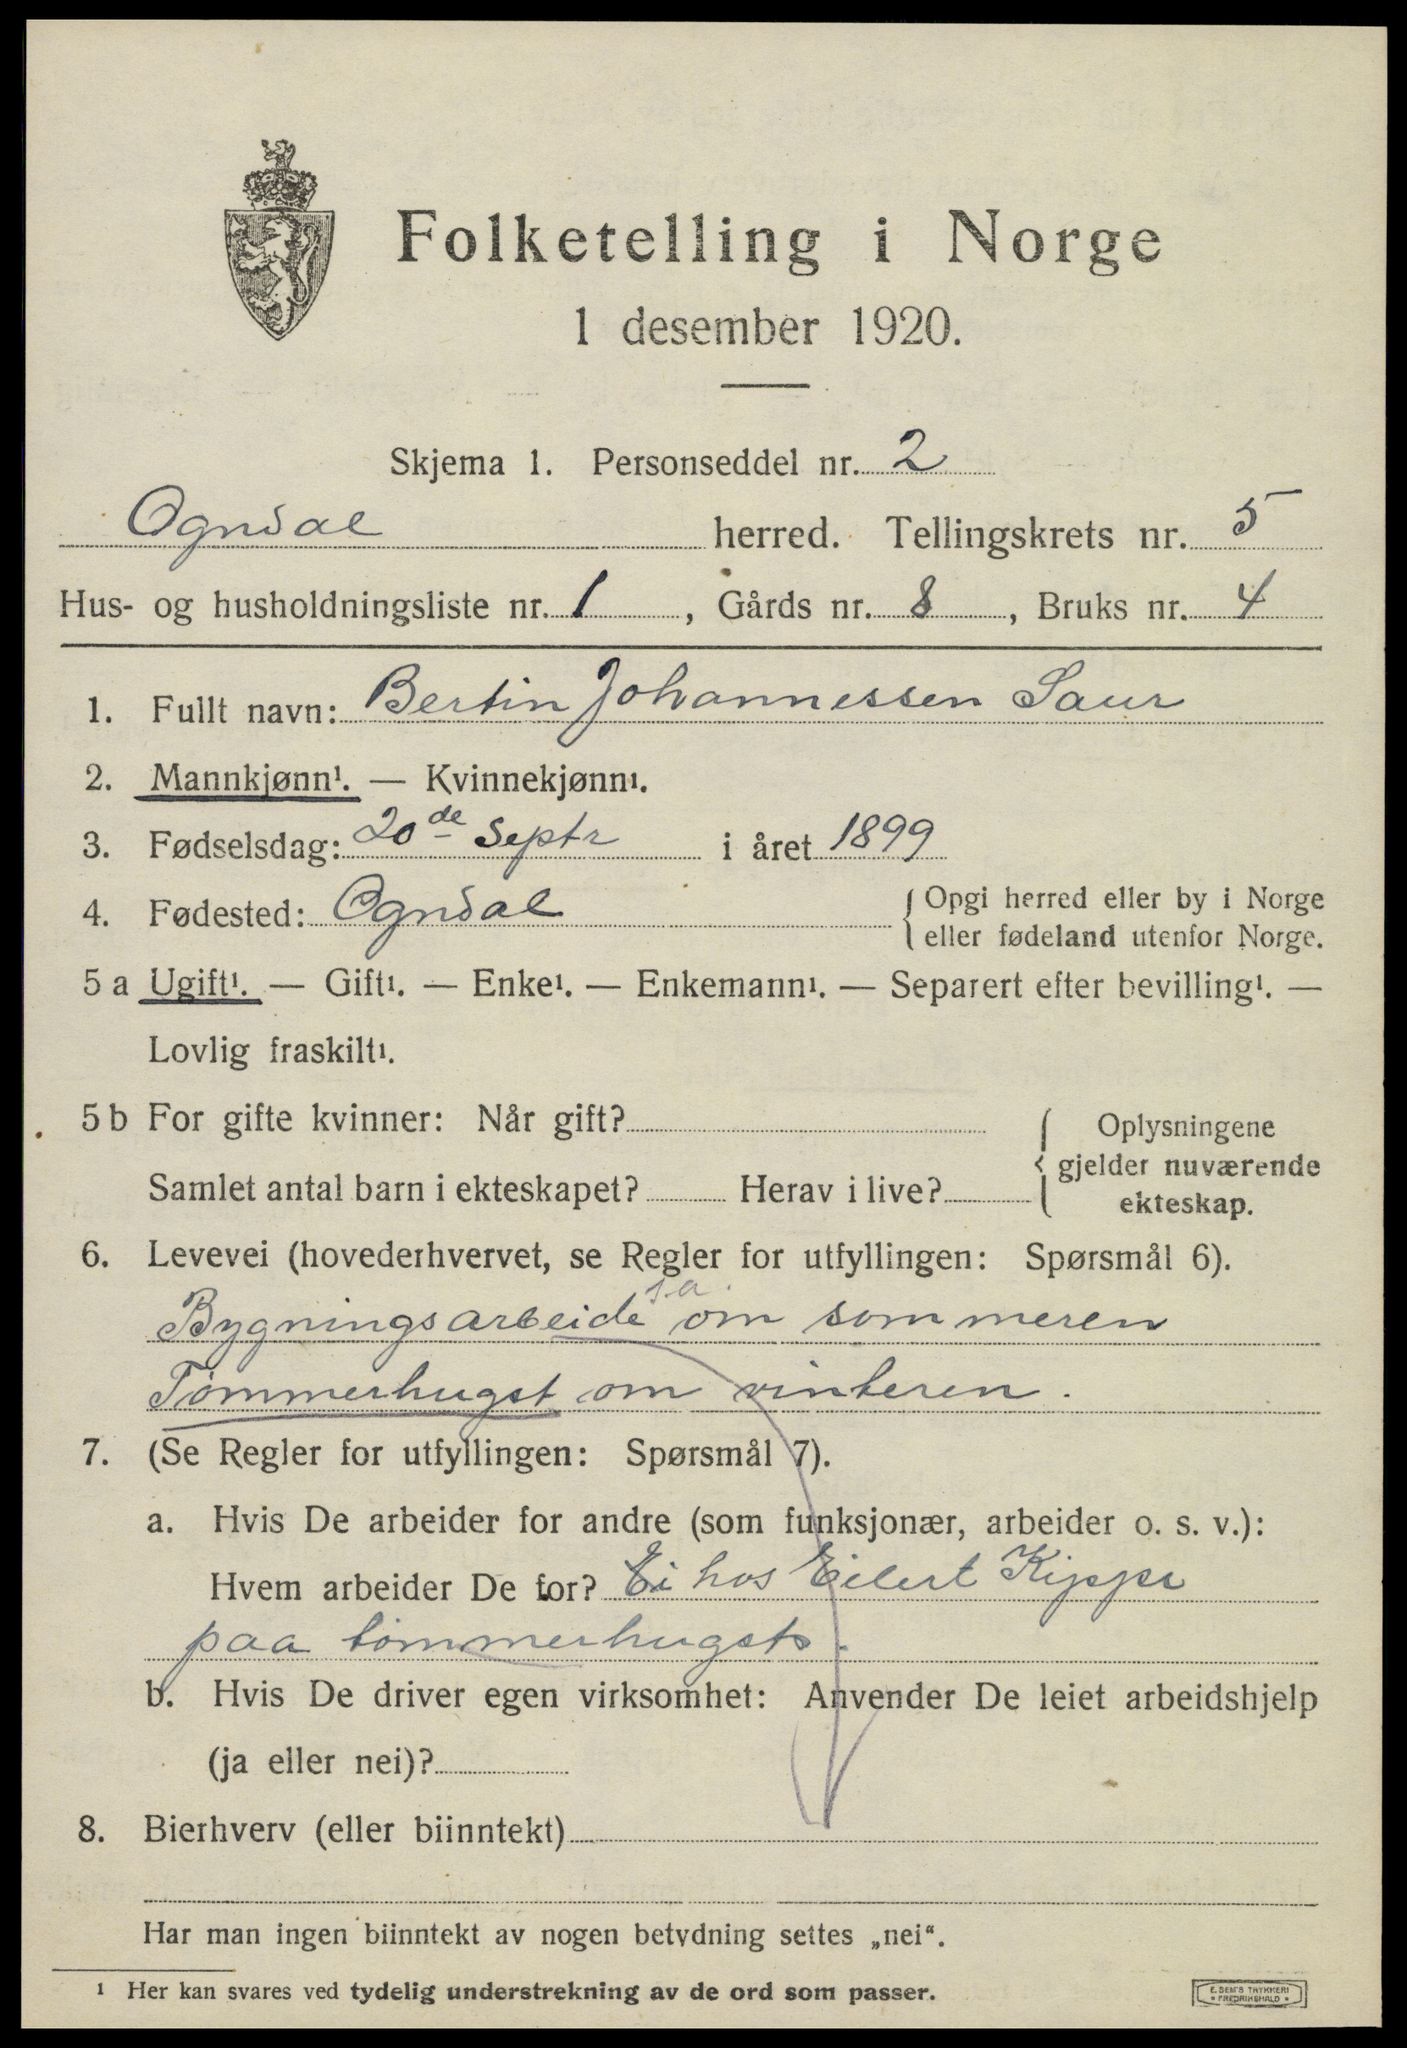 Folketelling i Norge
1 desember 1920.
Skjema 1. Personseddel nr. 2
Ogndal herred. Tellingskrets nr. 5
Hus- og husholdningsliste nr. 1, Gårds nr. 8, Bruks nr. 4
1. Fullt navn: Bertin Johannessen Saur
2. Mannkjønn¹. — Kvinnekjønn¹.
3. Fødselsdag: 20de Septr i året 1899
4. Fødested: Ogndal { Opgi herred eller by i Norge
eller fødeland utenfor Norge.
5 a Ugift¹. — Gift¹. — Enke¹. — Enkemann¹. — Separert efter bevilling¹. —
Lovlig fraskilt¹.
5 b For gifte kvinner: Når gift? { Oplysningene
gjelder nuværende
Samlet antal barn i ekteskapet? Herav i live?
ekteskap.
6. Levevei (hovederhvervet, se Regler for utfyllingen: Spørsmål 6).
Bygningsarbeide om sommeren
Tömmerhugst om vinteren.
7. (Se Regler for utfyllingen: Spørsmål 7).
a. Hvis De arbeider for andre (som funksjonær, arbeider o. s. v.):
Hvem arbeider De for? hos Eilert
paa tömmerhugst.
b. Hvis De driver egen virksomhet: Anvender De leiet arbeidshjelp
(ja eller nei)?
8. Bierhverv (eller biinntekt)
Har man ingen biinntekt av nogen betydning settes „nei“.
¹ Her kan svares ved tydelig understrekning av de ord som passer.
E. SEM'S TRYKKERI
• FREDRIKSHALD •